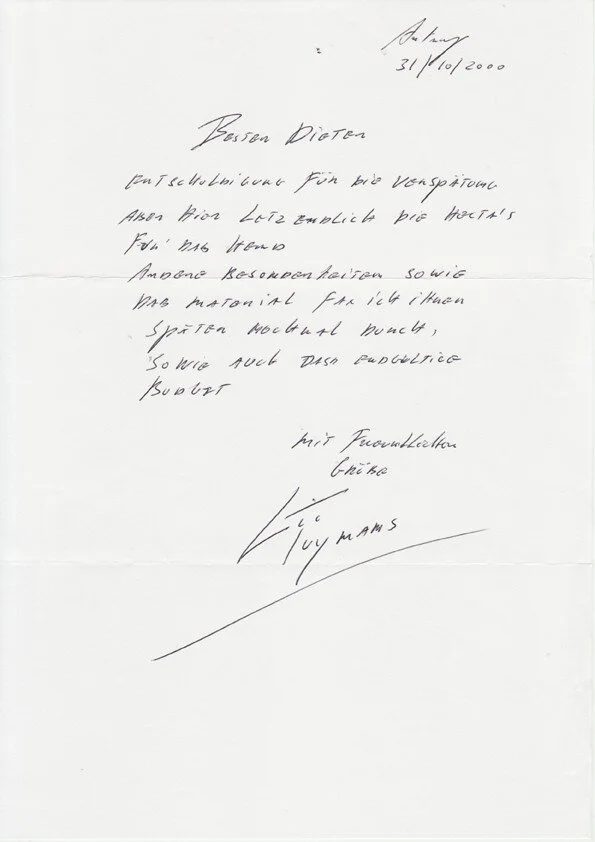 Antwerp
31/10/2000
Besten Dieter
Entschuldigung für die Verspätung
Aber hier letzendlich die
Für das Hemd
Andere Besonderheiten sowie
Das Material fax ich ihnen
Später nochmal durch,
Sowie auch dass endgültige
Budget
Mit Freundlichen
Grüße
Luc Tuymans